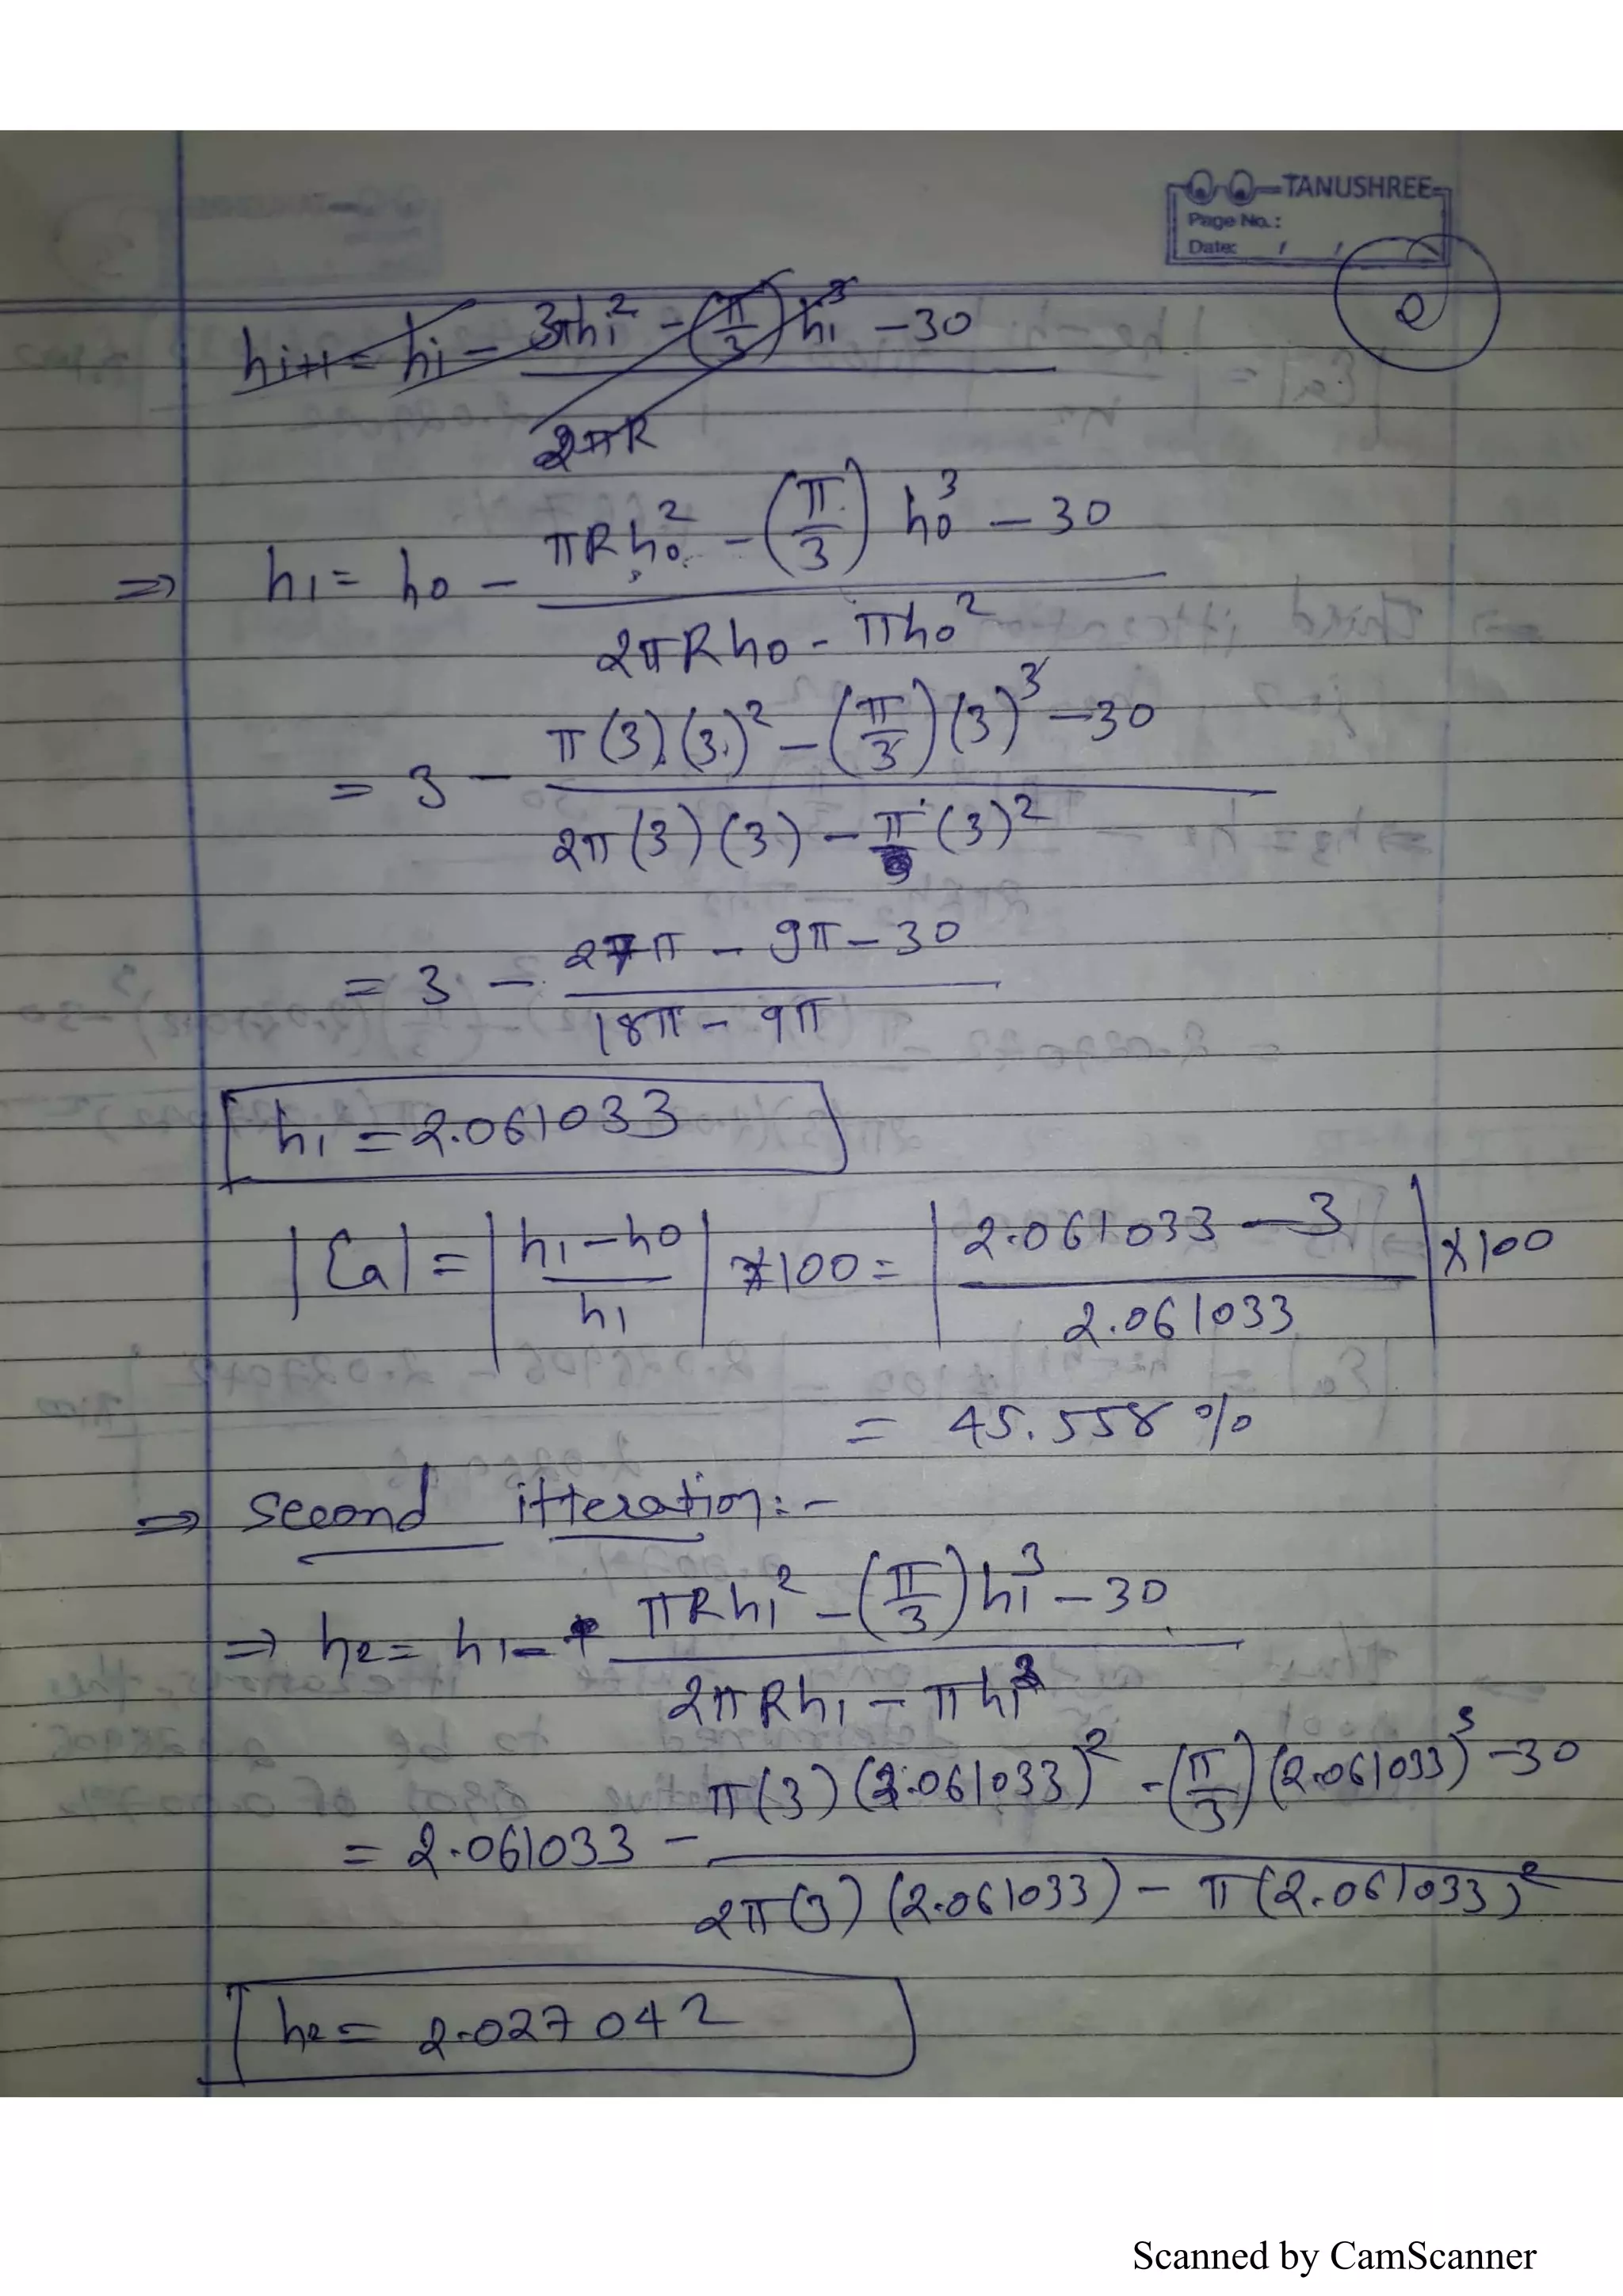 TANUSHREE
Page No.:
Date: / /
2
hi+1 = hi - 3πhi² - (π/3) hi³ - 30 / 2πR
⇒ h1 = h0 - πRh0² - (π/3) h0³ - 30 / 2πRh0 - πh0²
= 3 - π(3)(3)² - (π/3)(3)³ - 30 / 2π(3)(3) - π(3)²
= 3 - 27π - 9π - 30 / 18π - 9π
h1 = 2.061033
|Ea| = |h1 - h0 / h1| * 100 = |2.061033 - 3 / 2.061033| * 100
= 45.558 %
⇒ Second itteration:-
⇒ h2 = h1 - πRh1² - (π/3) h1³ - 30 / 2πRh1 - πh1²
= 2.061033 - π(3)(2.061033)² - (π/3)(2.061033)³ - 30 / 2π(3)(2.061033) - π(2.061033)²
h2 = 2.027042
Scanned by CamScanner